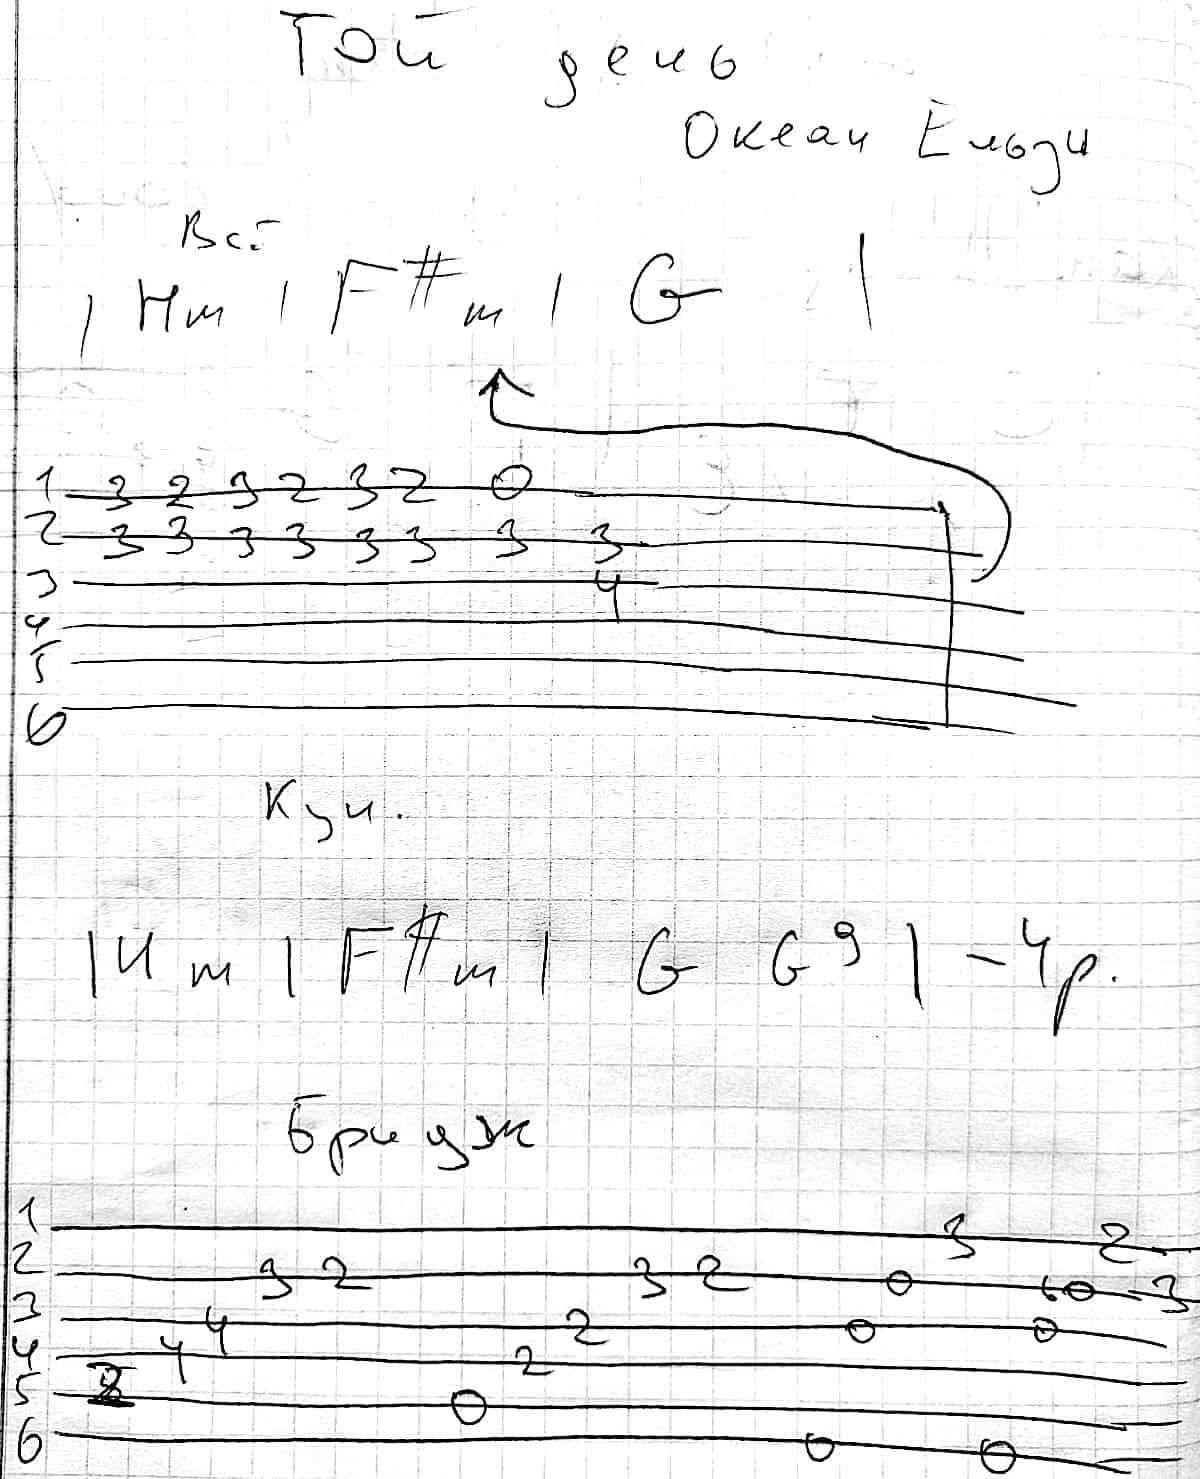 Той день
Океан Ельзи
Всі
| Hm | F#m | G |
1 3 2 3 2 3 2 0
2 3 3 3 3 3 3 3 3
3 4
4
5
6
Куп.
| Hm | F#m | G G9 | - 4 р.
Бридж
1 3 2
2 3 2 3 2 0 0 3
3 4 2 0 0
4 4 2
5 2 0
6 0 0